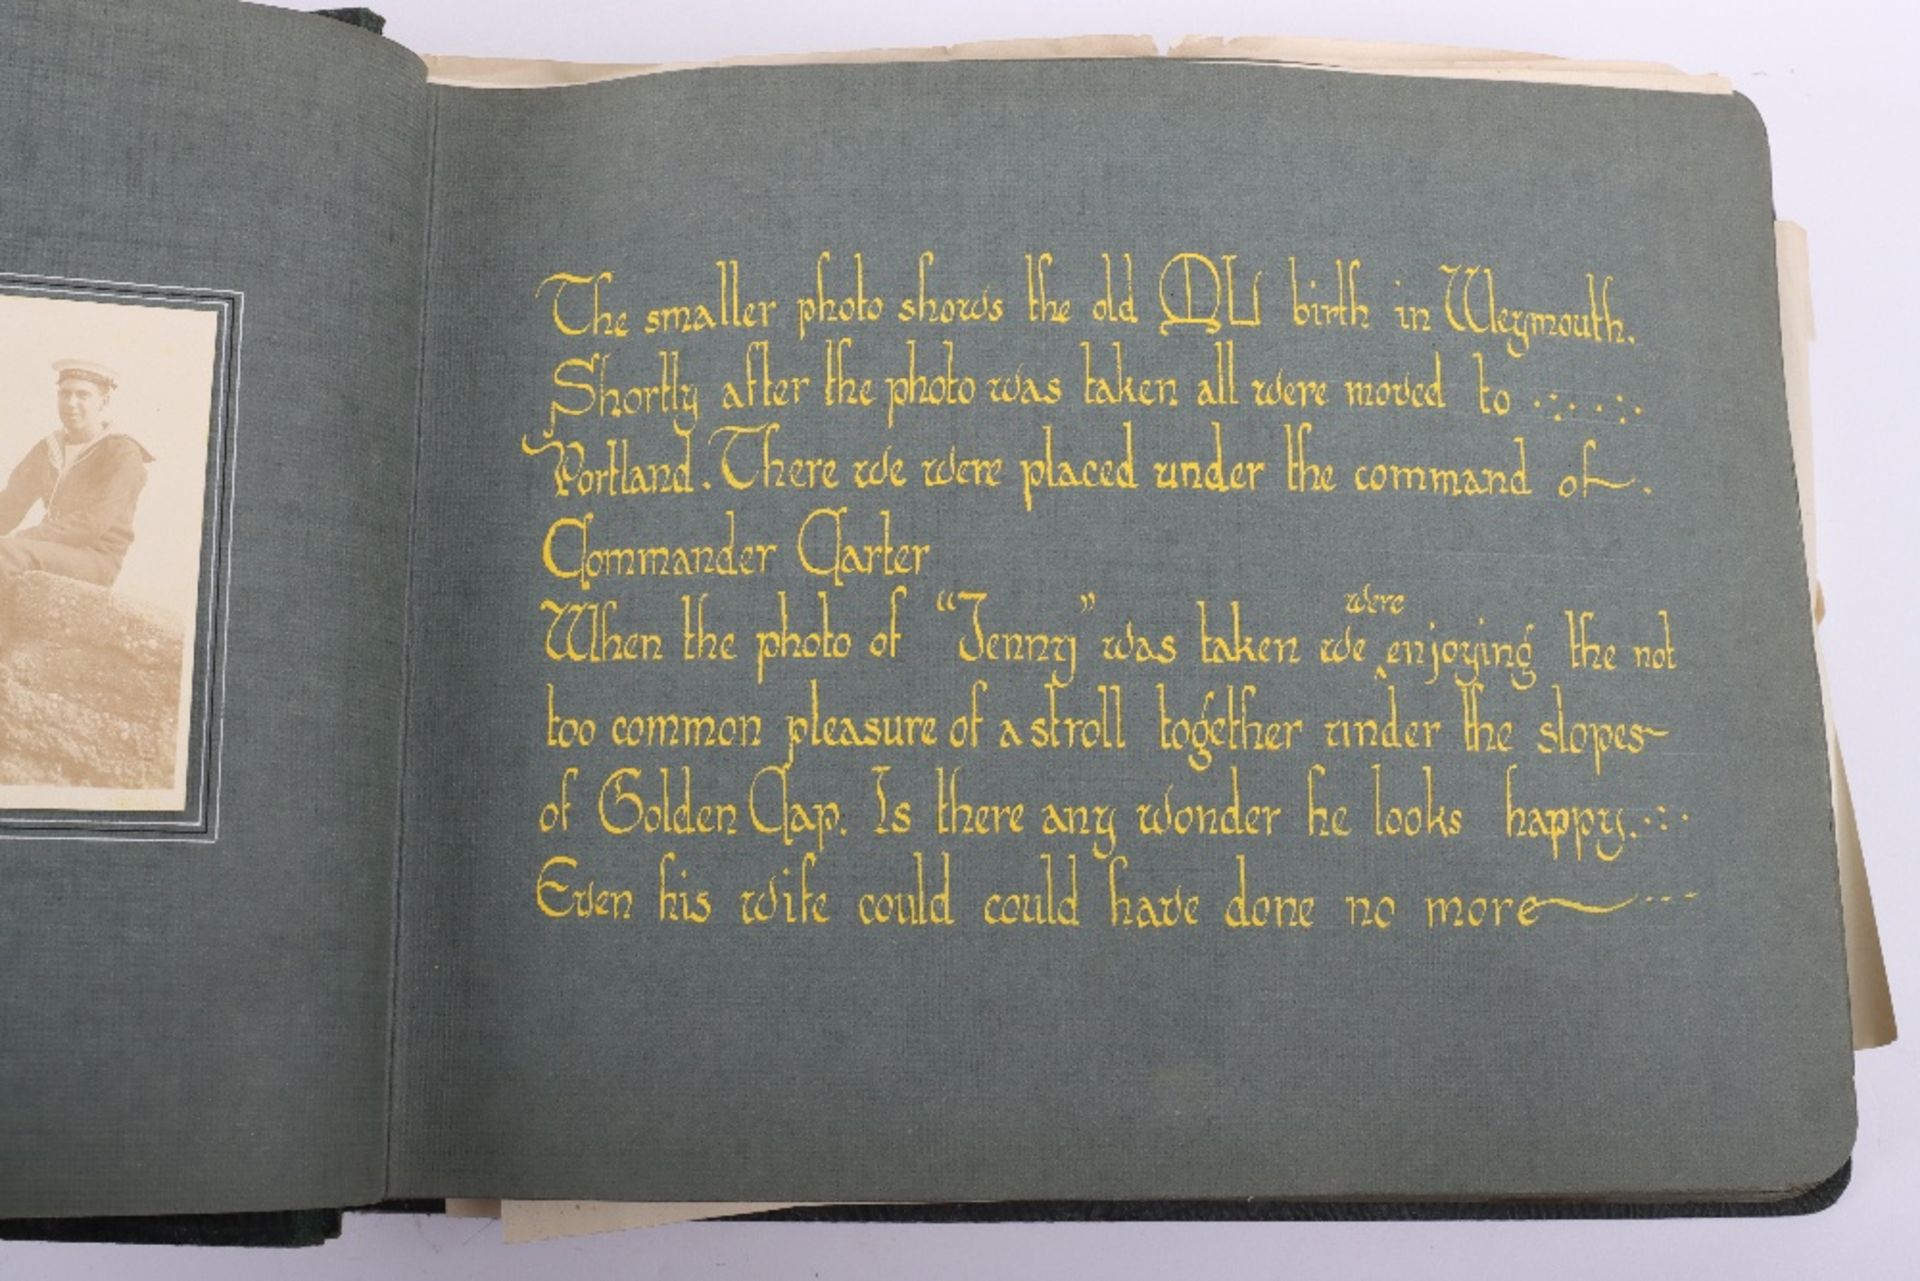 The smaller photo shows the old ML birth in Weymouth.
Shortly after the photo was taken all were moved to
Portland. There we were placed under the command of.
Commander Carter
When the photo of "Jenny" was taken we were enjoying the not
too common pleasure of a stroll together under the slopes
of Golden Cap. Is there any wonder he looks happy.
Even his wife could could have done no more